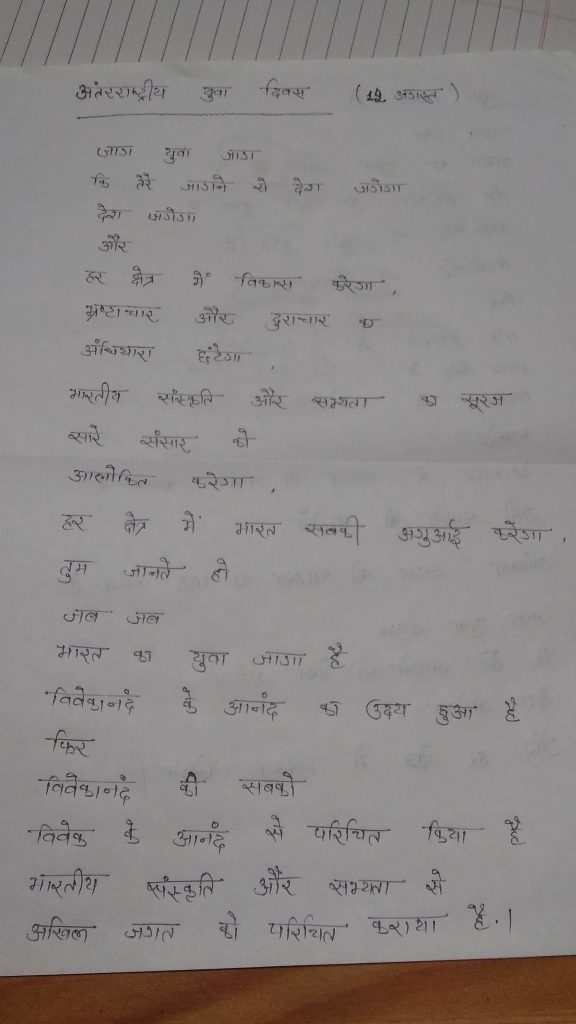 अंतरराष्ट्रीय युवा दिवस (12 अगस्त)
जाग युवा जाग
कि तेरे जागने से देश जगेगा
देश जगेगा
और
हर क्षेत्र में विकास करेगा,
भ्रष्टाचार और दुराचार का
अंधियारा छंटेगा,
भारतीय संस्कृति और सभ्यता का सूरज
सारे संसार को
आलोकित करेगा,
हर क्षेत्र में भारत सबकी अगुआई करेगा,
तुम जानते हो
जब जब
भारत का युवा जागा है
विवेकानंद के आनंद का उदय हुआ है
फिर
विवेकानंद की सबको
विवेक के आनंद से परिचित किया है
भारतीय संस्कृति और सभ्यता से
अखिल जगत को परिचित कराया है.।